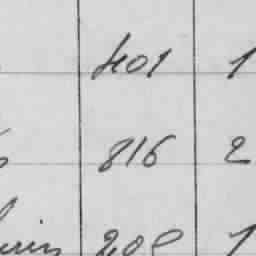 401 1
816 2
208 1